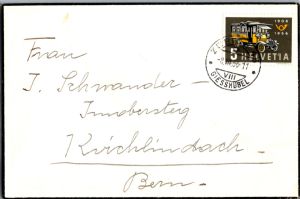 1906
1956
5 HELVETIA
VIII
GIESSHÜBEL
Frau
I. Schwander-
Innbersteg
Kirchlindach
Bern.-